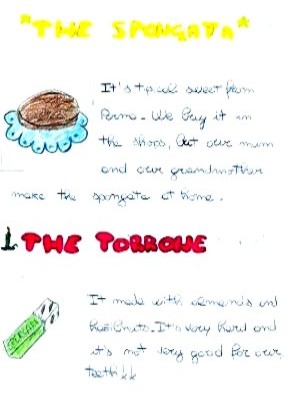 "THE SPONGATA"
It's tipical sweet from
Parma. We buy it in
the shops, but our mum
and our grandmother
make the spongata at home.
THE TORRONE
It made with almonds and
It's very hard and
it's not very good for our
teeth!!